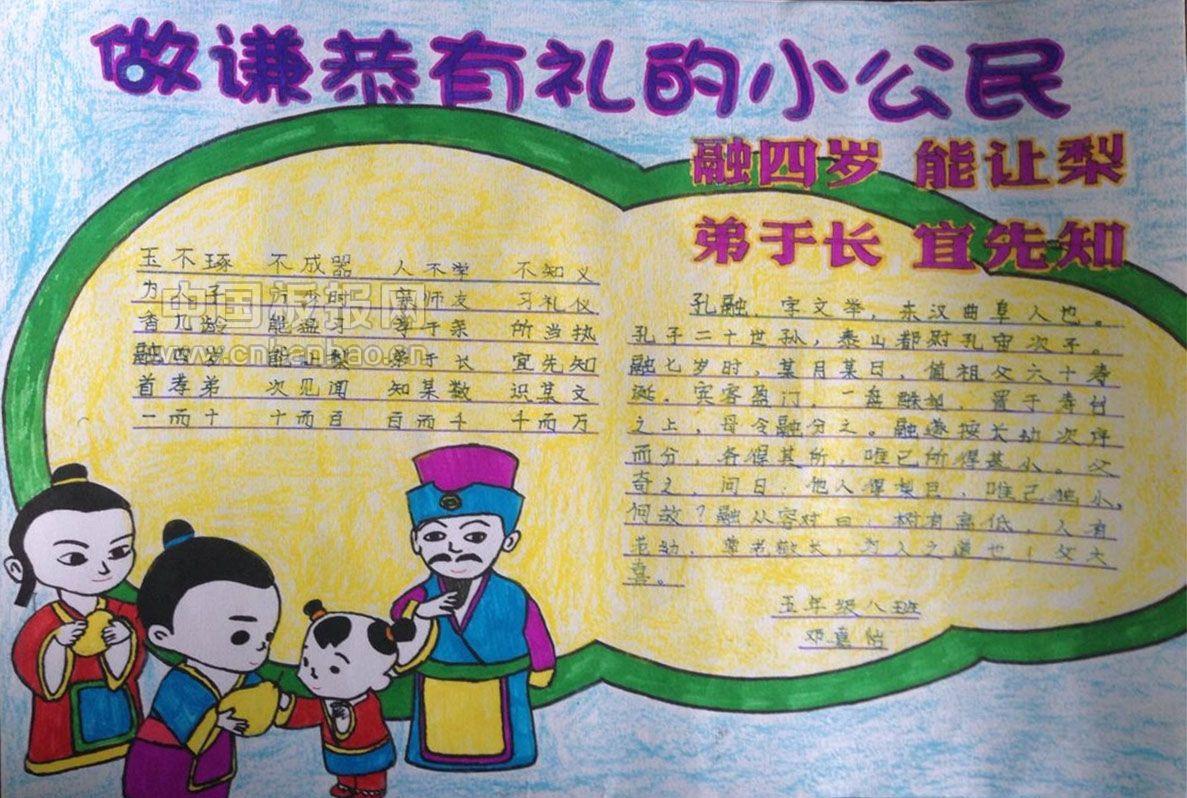 做谦恭有礼的小公民
融四岁 能让梨
弟于长 宜先知
玉不琢 不成器 人不学 不知义
为人子 方少时 亲师友 习礼仪
香九龄 能温习 孝于亲 所当执
融四岁 能让梨 弟于长 宜先知
首孝弟 次见闻 知某数 识某文
一而十 十而百 百而千 千而万
中国板报网
www.cnbanbao.cn
孔融，字文举，东汉曲阜人也。
孔子二十世孙，泰山都尉孔宙次子。
融七岁时，某月某日，值祖父六十寿
诞，宾客盈门，一盘酥梨，置于寿台
之上，母令融分之。融遂按长幼次序
而分，各得其所，唯己所得甚小。父
奇之，问曰：他人得梨巨，唯己独小，
何故？融从容对曰：树有高低，人有
老幼，尊老敬长，为人之道也！父大
喜。
五年级八班
邓嘉怡